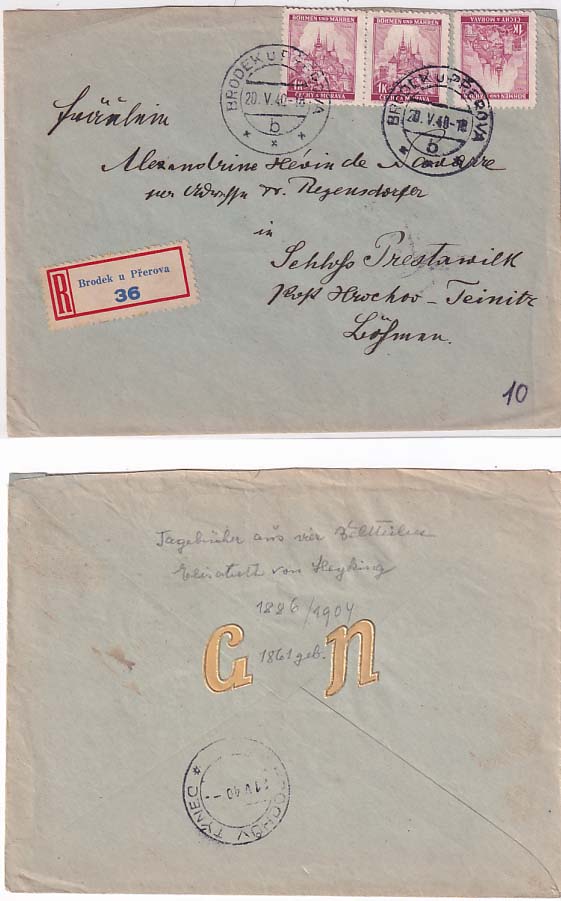 BÖHMEN UND MÄHREN
BÖHMEN UND MÄHREN
1K
1K
ČECHY A MORAVA
ČECHY A MORAVA
BÖHMEN UND MÄHREN
1K
ČECHY A MORAVA
BRODEK U PŘEROVA
20.V.40-18
b
BRODEK U PŘEROVA
20.V.40-18
b
Fräulein
Alexandrine Hévin de
per Adresse Dr. Regensdorfer
in
Schloß Prestawilk
Post Hrochov-Teinitz
Böhmen.
R
Brodek u Přerova
36
10
Tagebücher aus vier Weltteilen
Elisabeth von Heyking
1886/1904
1861 geb.
G N
HROCHŮV TÝNEC
1.V.40